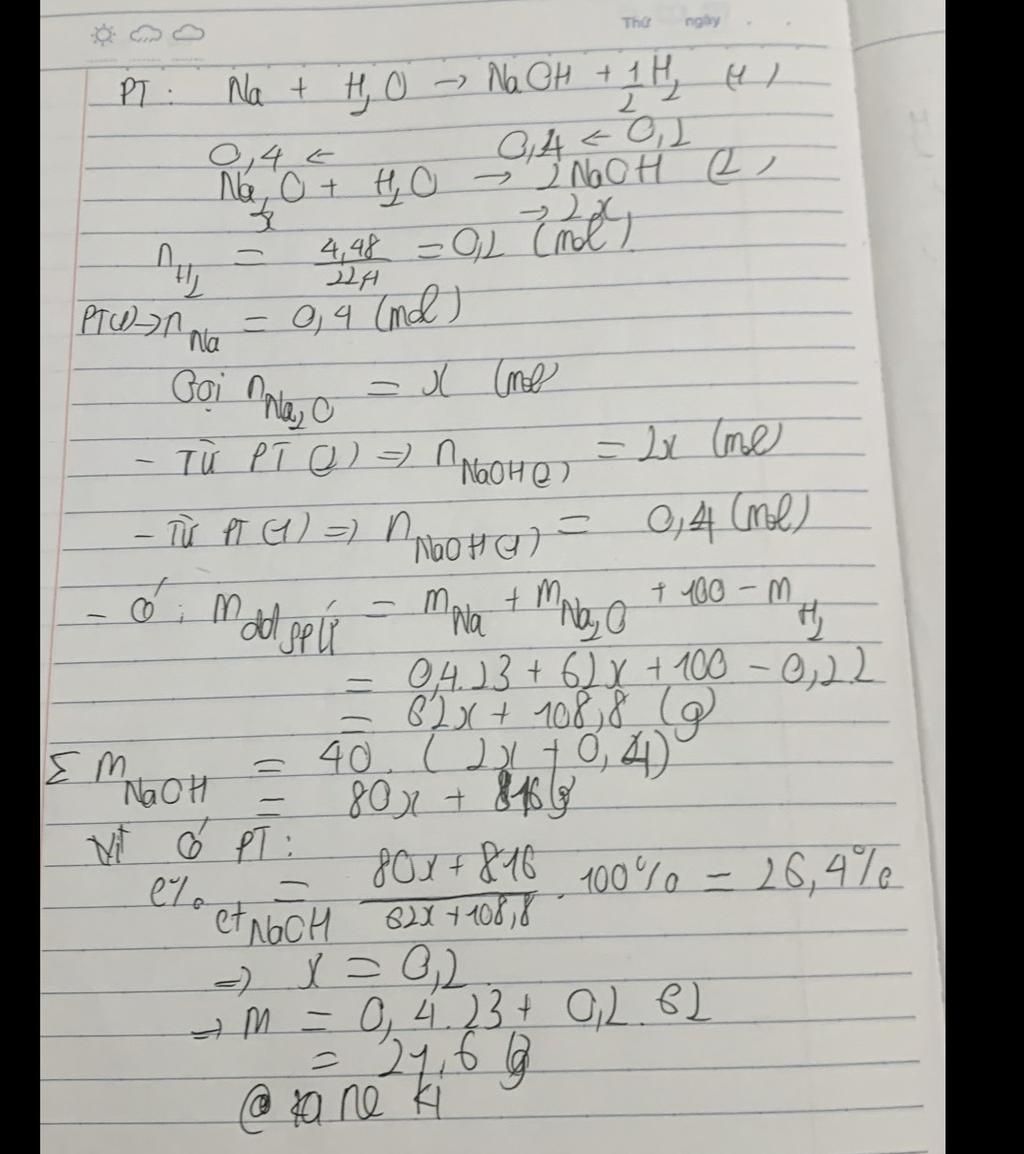 Thứ ngày . .
PT: Na + H₂O → NaOH + 1/2 H₂ (1)
0,4 ← 0,4 ← 0,2
Na₂O + H₂O → 2NaOH (2)
x → 2x
n H₂ = 4,48/22,4 = 0,2 (mol)
PT(1) → n Na = 0,4 (mol)
Gọi n Na₂O = x (mol)
- Từ PT (2) => n NaOH(2) = 2x (mol)
- Từ PT (1) => n NaOH(1) = 0,4 (mol)
- Có : m dd spứ = m Na + m Na₂O + 100 - m H₂
= 0,4.23 + 62x + 100 - 0,2.2
= 62x + 108,8 (g)
Σ m NaOH = 40. (2x + 0,4)
= 80x + 816 (g)
Vì có PT:
C% ct NaOH = (80x + 816)/(62x + 108,8) . 100% = 26,4%
=> x = 0,2
=> m = 0,4.23 + 0,2.62
= 21,6 (g)